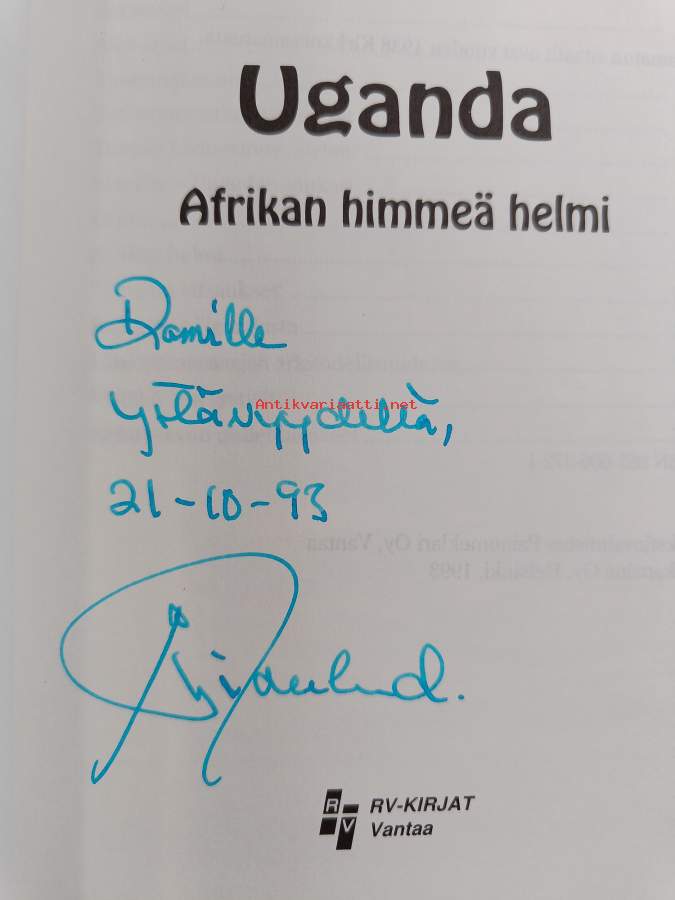 Uganda
Afrikan himmeä helmi
Ramille
ystävyydellä,
Antikvariaatti.net
21-10-93
RV
RV-KIRJAT
Vantaa